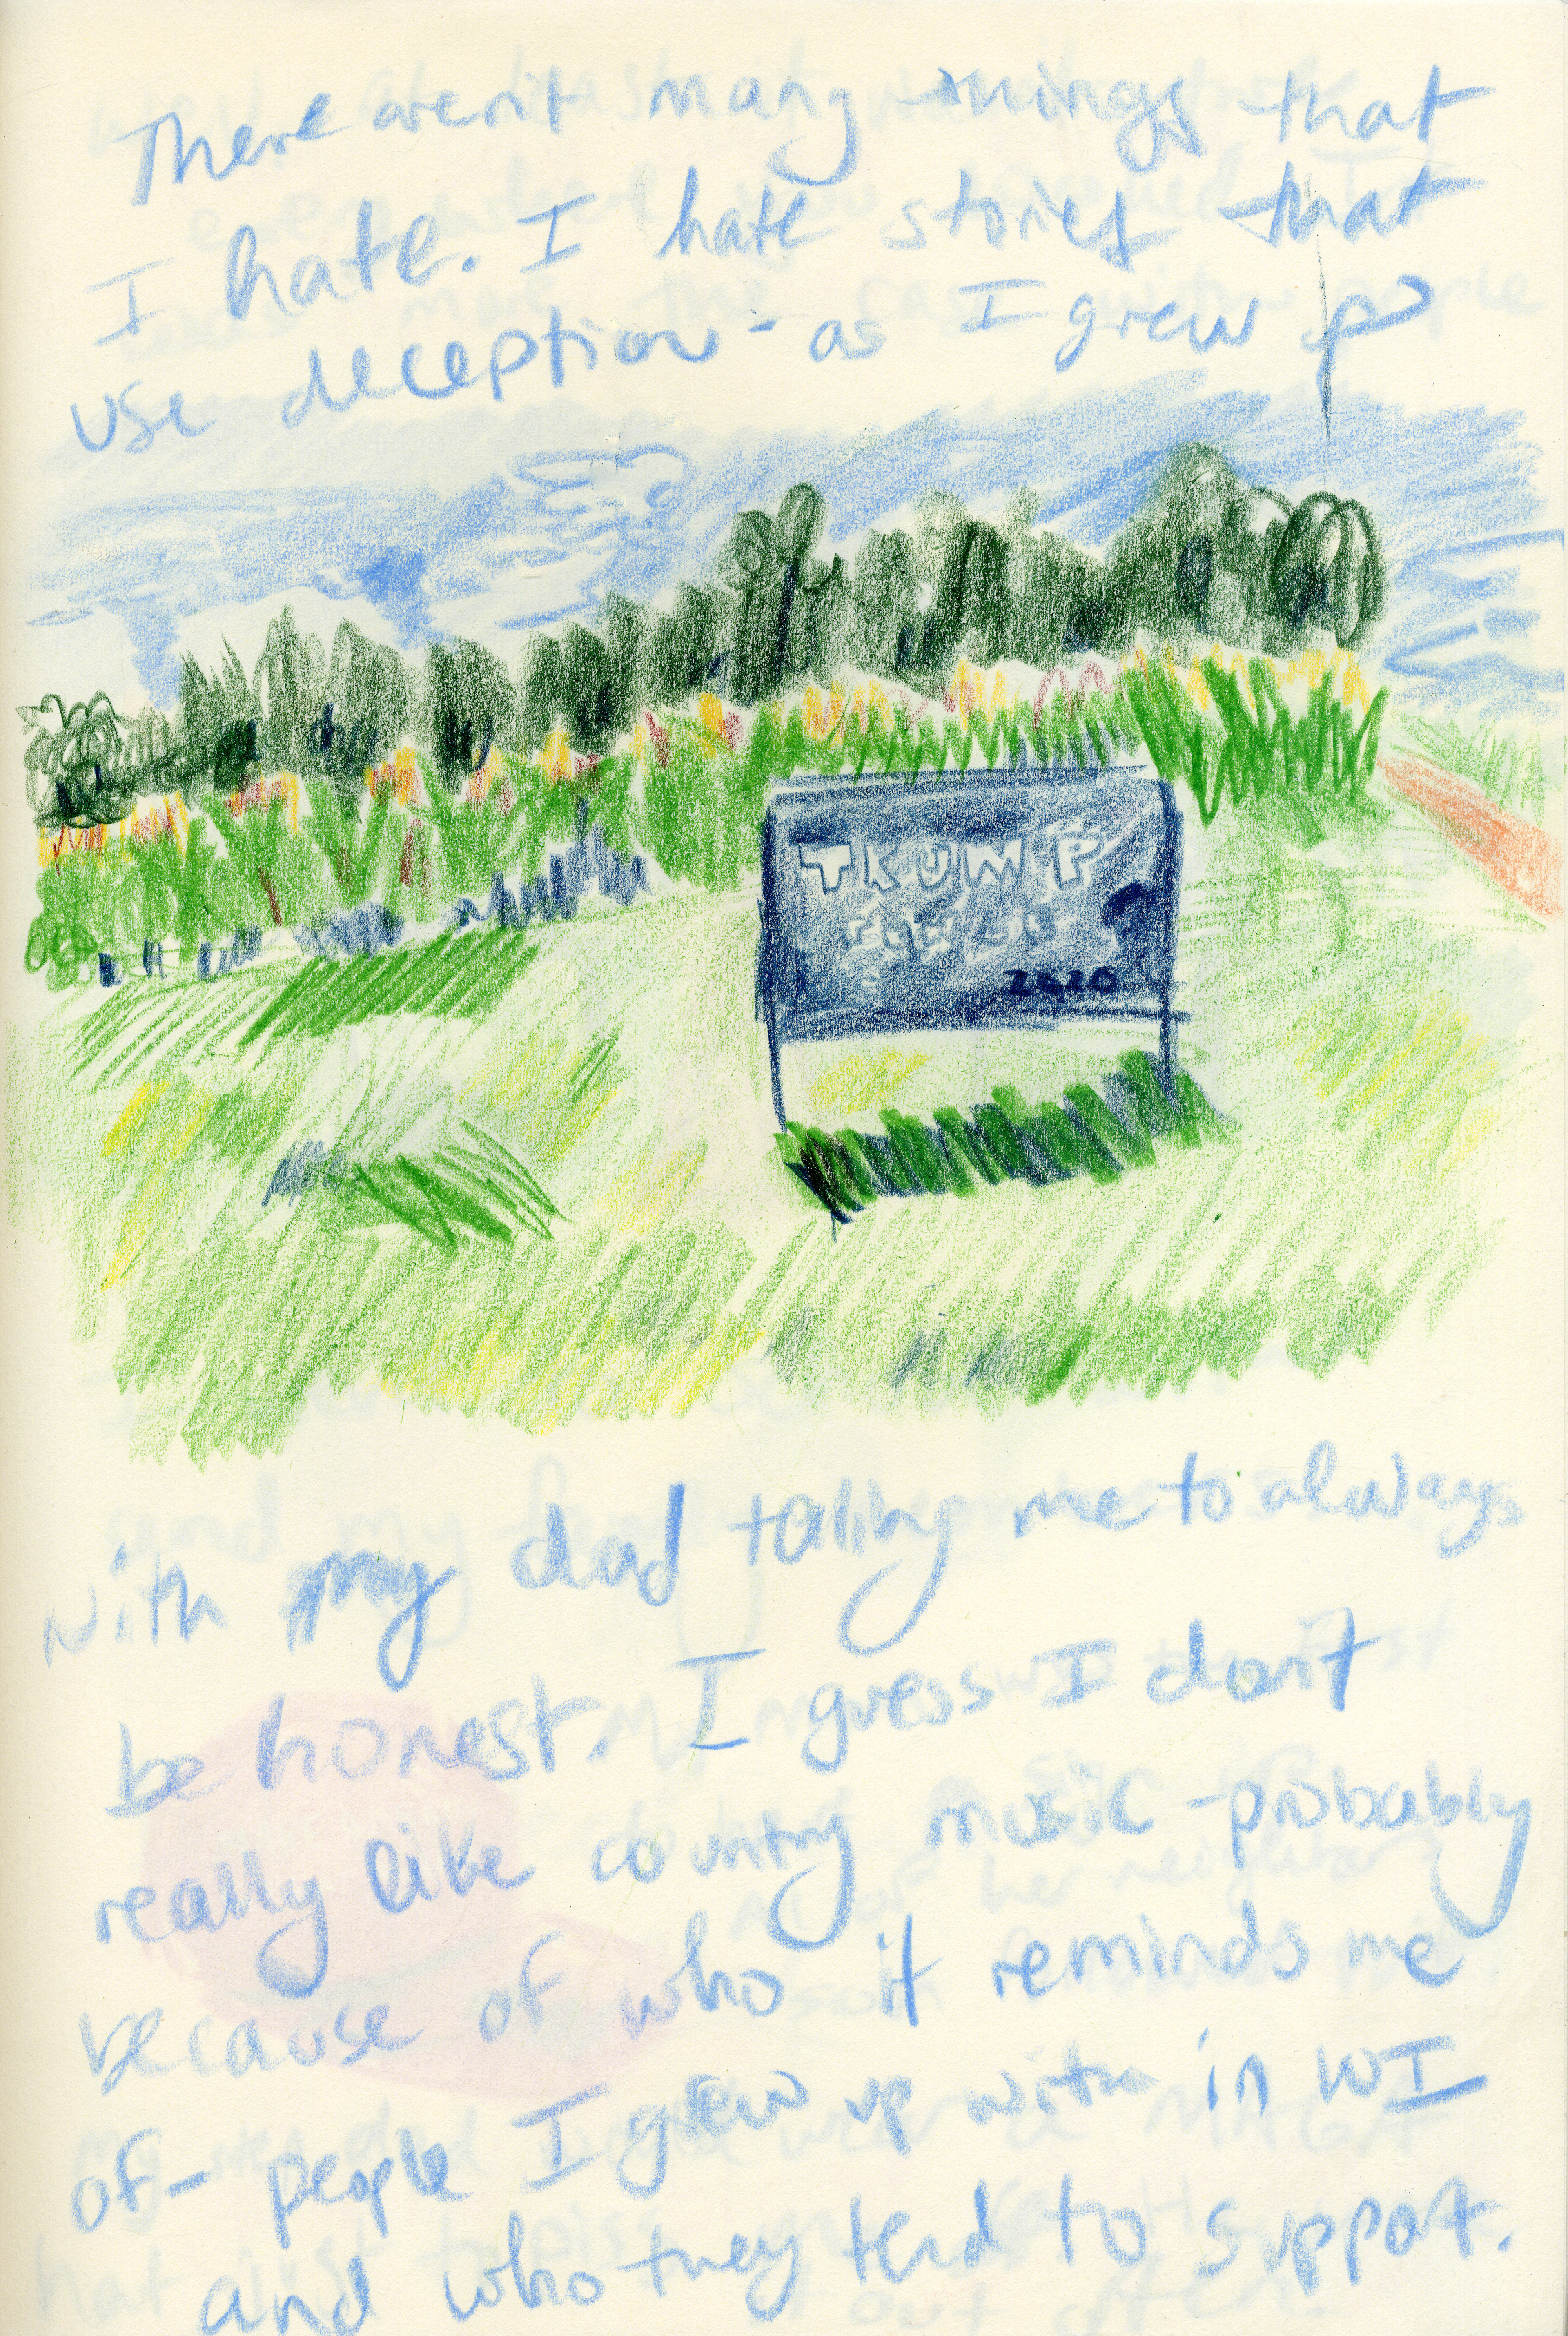 There aren't many things that
I hate. I hate stories that
use deception - as I grew up
TRUMP
2020
with my dad telling me to always
be honest. I guess I don't
really like country music - probably
because of who it reminds me
of - people I grew up with in WI
and who they tend to support.